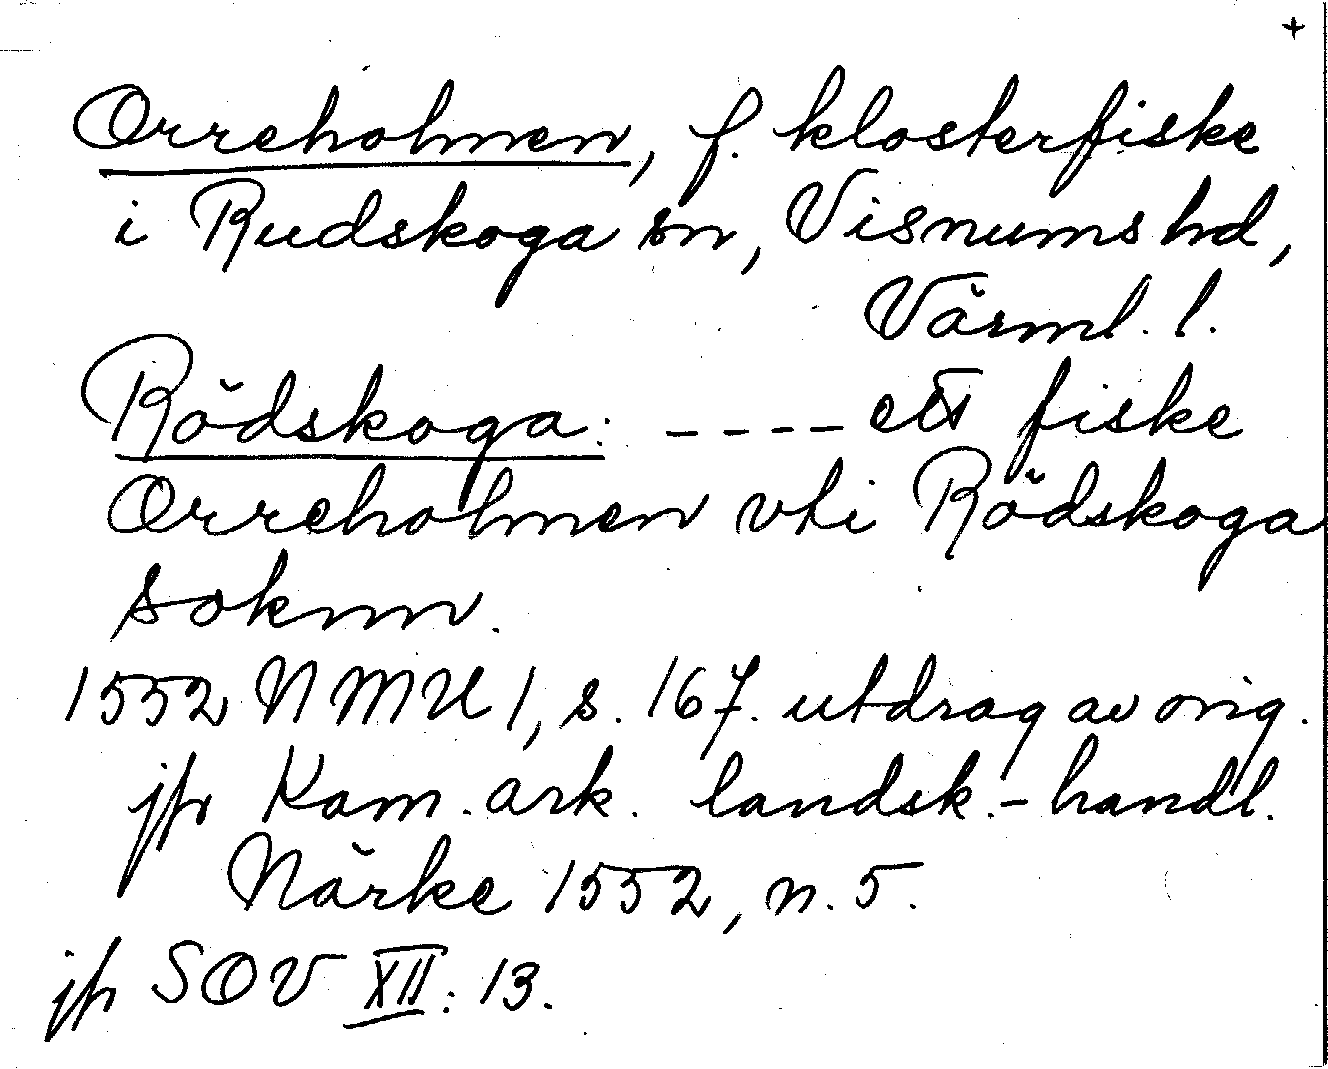 +
Orreholmen, f. klosterfiske
i Rudskoga sn, Visnums hd,
Värml. l.
Rödskoga: ---- ett fiske
Orreholmen vti Rödskoga
soknn.
1552 NMU 1, s. 167. utdrag av orig.
jfr Kam. ark. landsk.-handl.
Närke 1552, n. 5.
jfr SOV XII: 13.